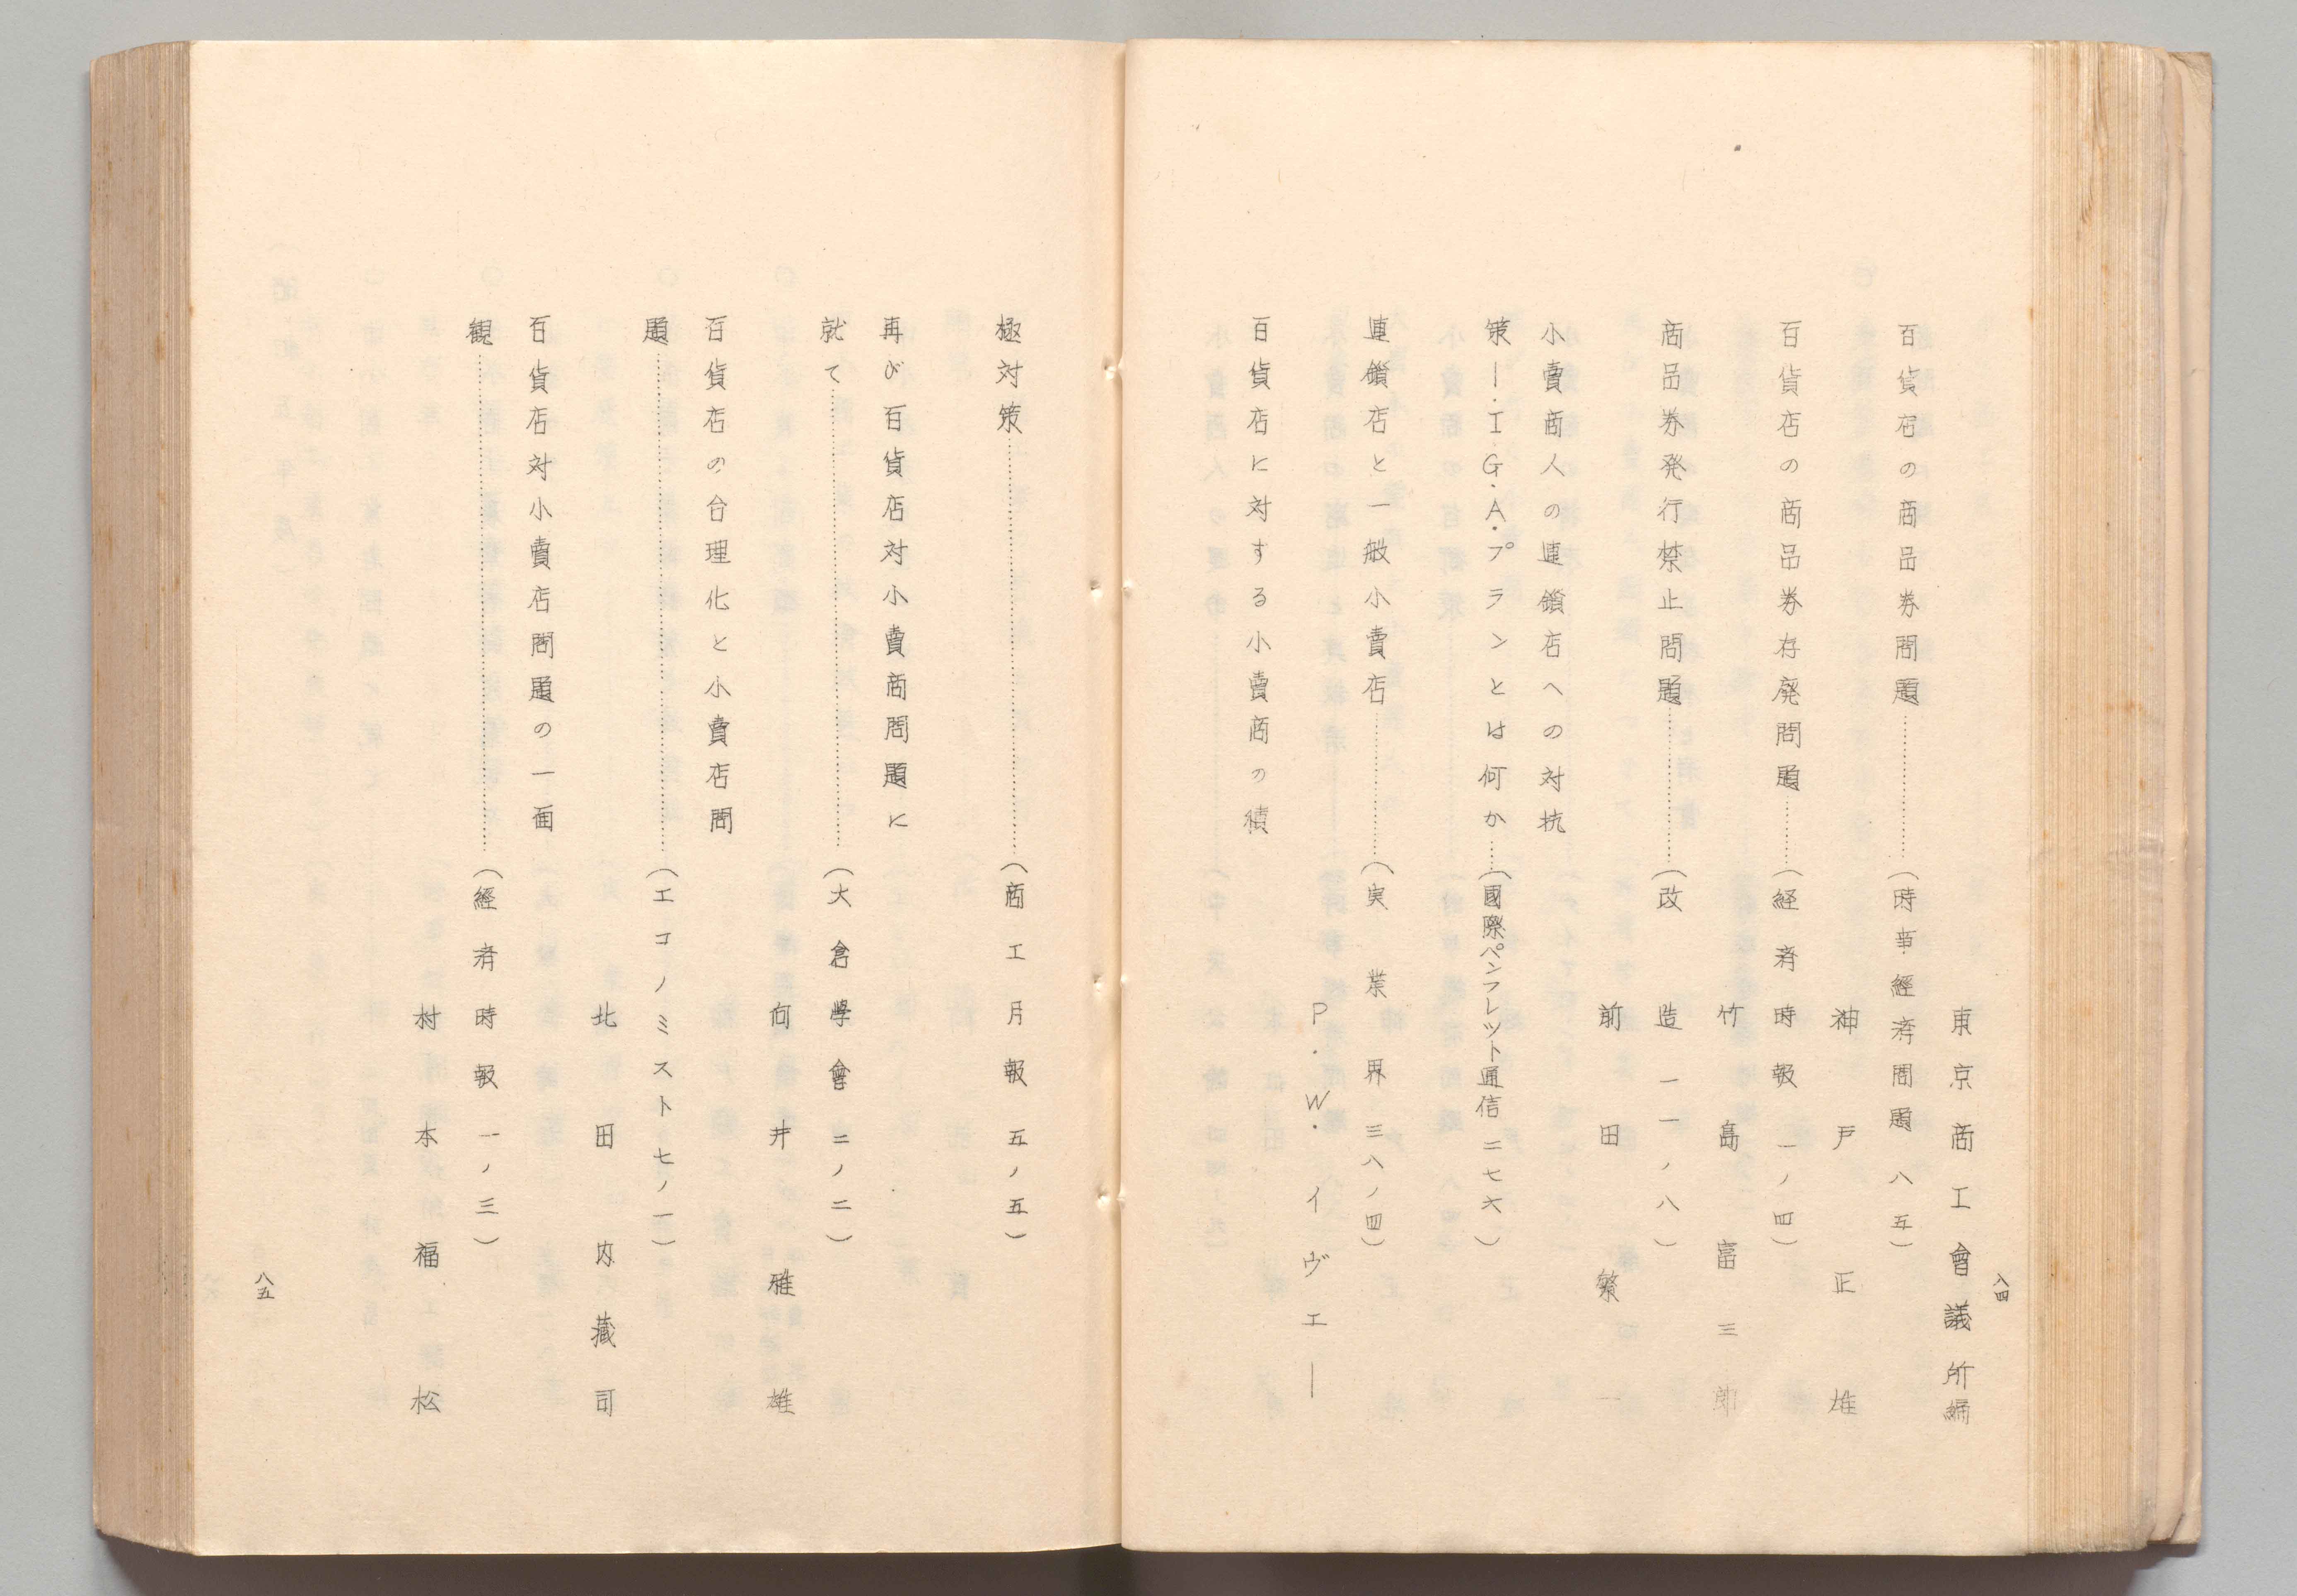 八四
東京商工會議所編
百貨店の商品券問題…………(時事經済問題 八五)
神戸正雄
百貨店の商品券存廃問題………(経済時報 一ノ四)
竹島富三郎
商品券発行禁止問題……………(改造 一一ノ八)
前田繁一
小賣商人の連鎖店への対抗
策―・I・G・A・プランとは何か……(國際パンフレツト通信 二七六)
連鎖店と一般小賣店……………(実業界 三八ノ四)
P.W.イヴエー
百貨店に対する小賣商の積
極対策……………………………(商工月報 五ノ五)
再び百貨店対小賣商問題に
就て………………………………(大倉學會 二ノ二)
向井雅雄
百貨店の合理化と小賣店問
題…………………………………(エコノミスト 七ノ一)
北田内蔵司
百貨店対小賣店問題の一面
観…………………………………(經済時報 一ノ三)
村本福松
八五